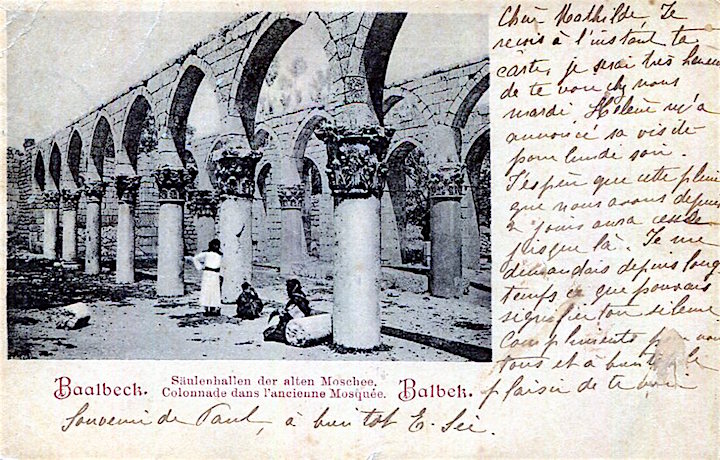 Chère Mathilde, Je
reçois à l'instant ta
carte, je serai très heureux
de te voir chez nous
mardi. Hélène m'a
annoncé sa visite
pour lundi soir.
J'espère que cette pluie
que nous avons depuis
2 jours aura cessé
jusque là. Je me
demandais depuis long
temps ce que pouvais
signifier ton silence
Compliments pour vous
tous et à bientôt le
plaisir de te voir
Baalbeck. Säulenhallen der alten Moschee. Balbek.
Colonnade dans l'ancienne Mosquée.
Souvenir de Paul, à bientôt E. Sée.